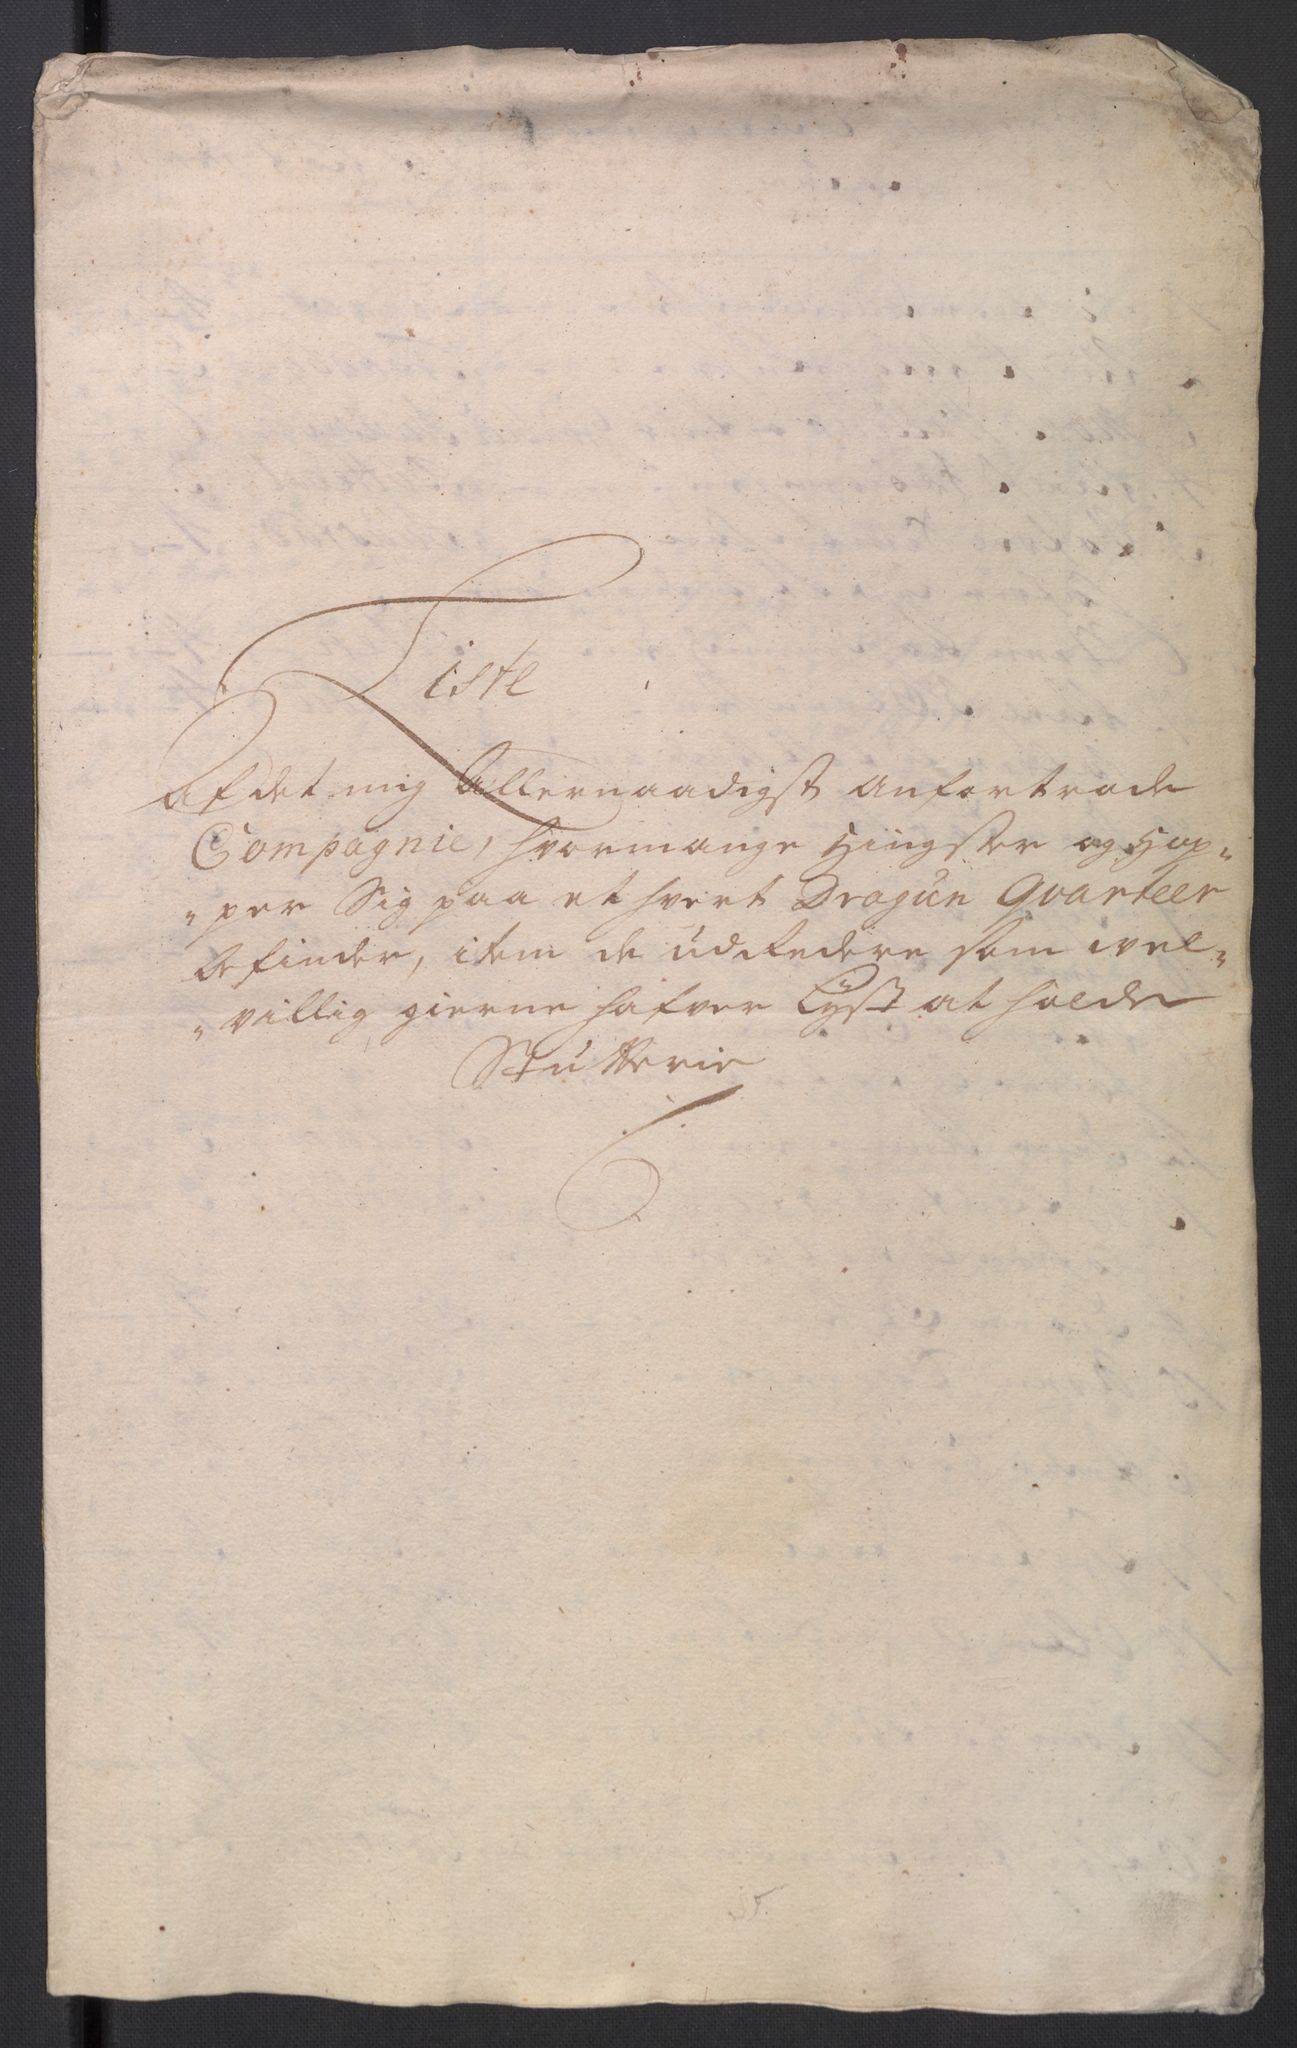 Liste
Af det mig Allernaadigst Anfortrode
Compagnie, hvormange Hingster og Hop„
„per Sig paa et hvert Dragun Qvarteer
befinder, item de udRedere som vel„
„villig gierne hafver Lyst at holde
Stutterie